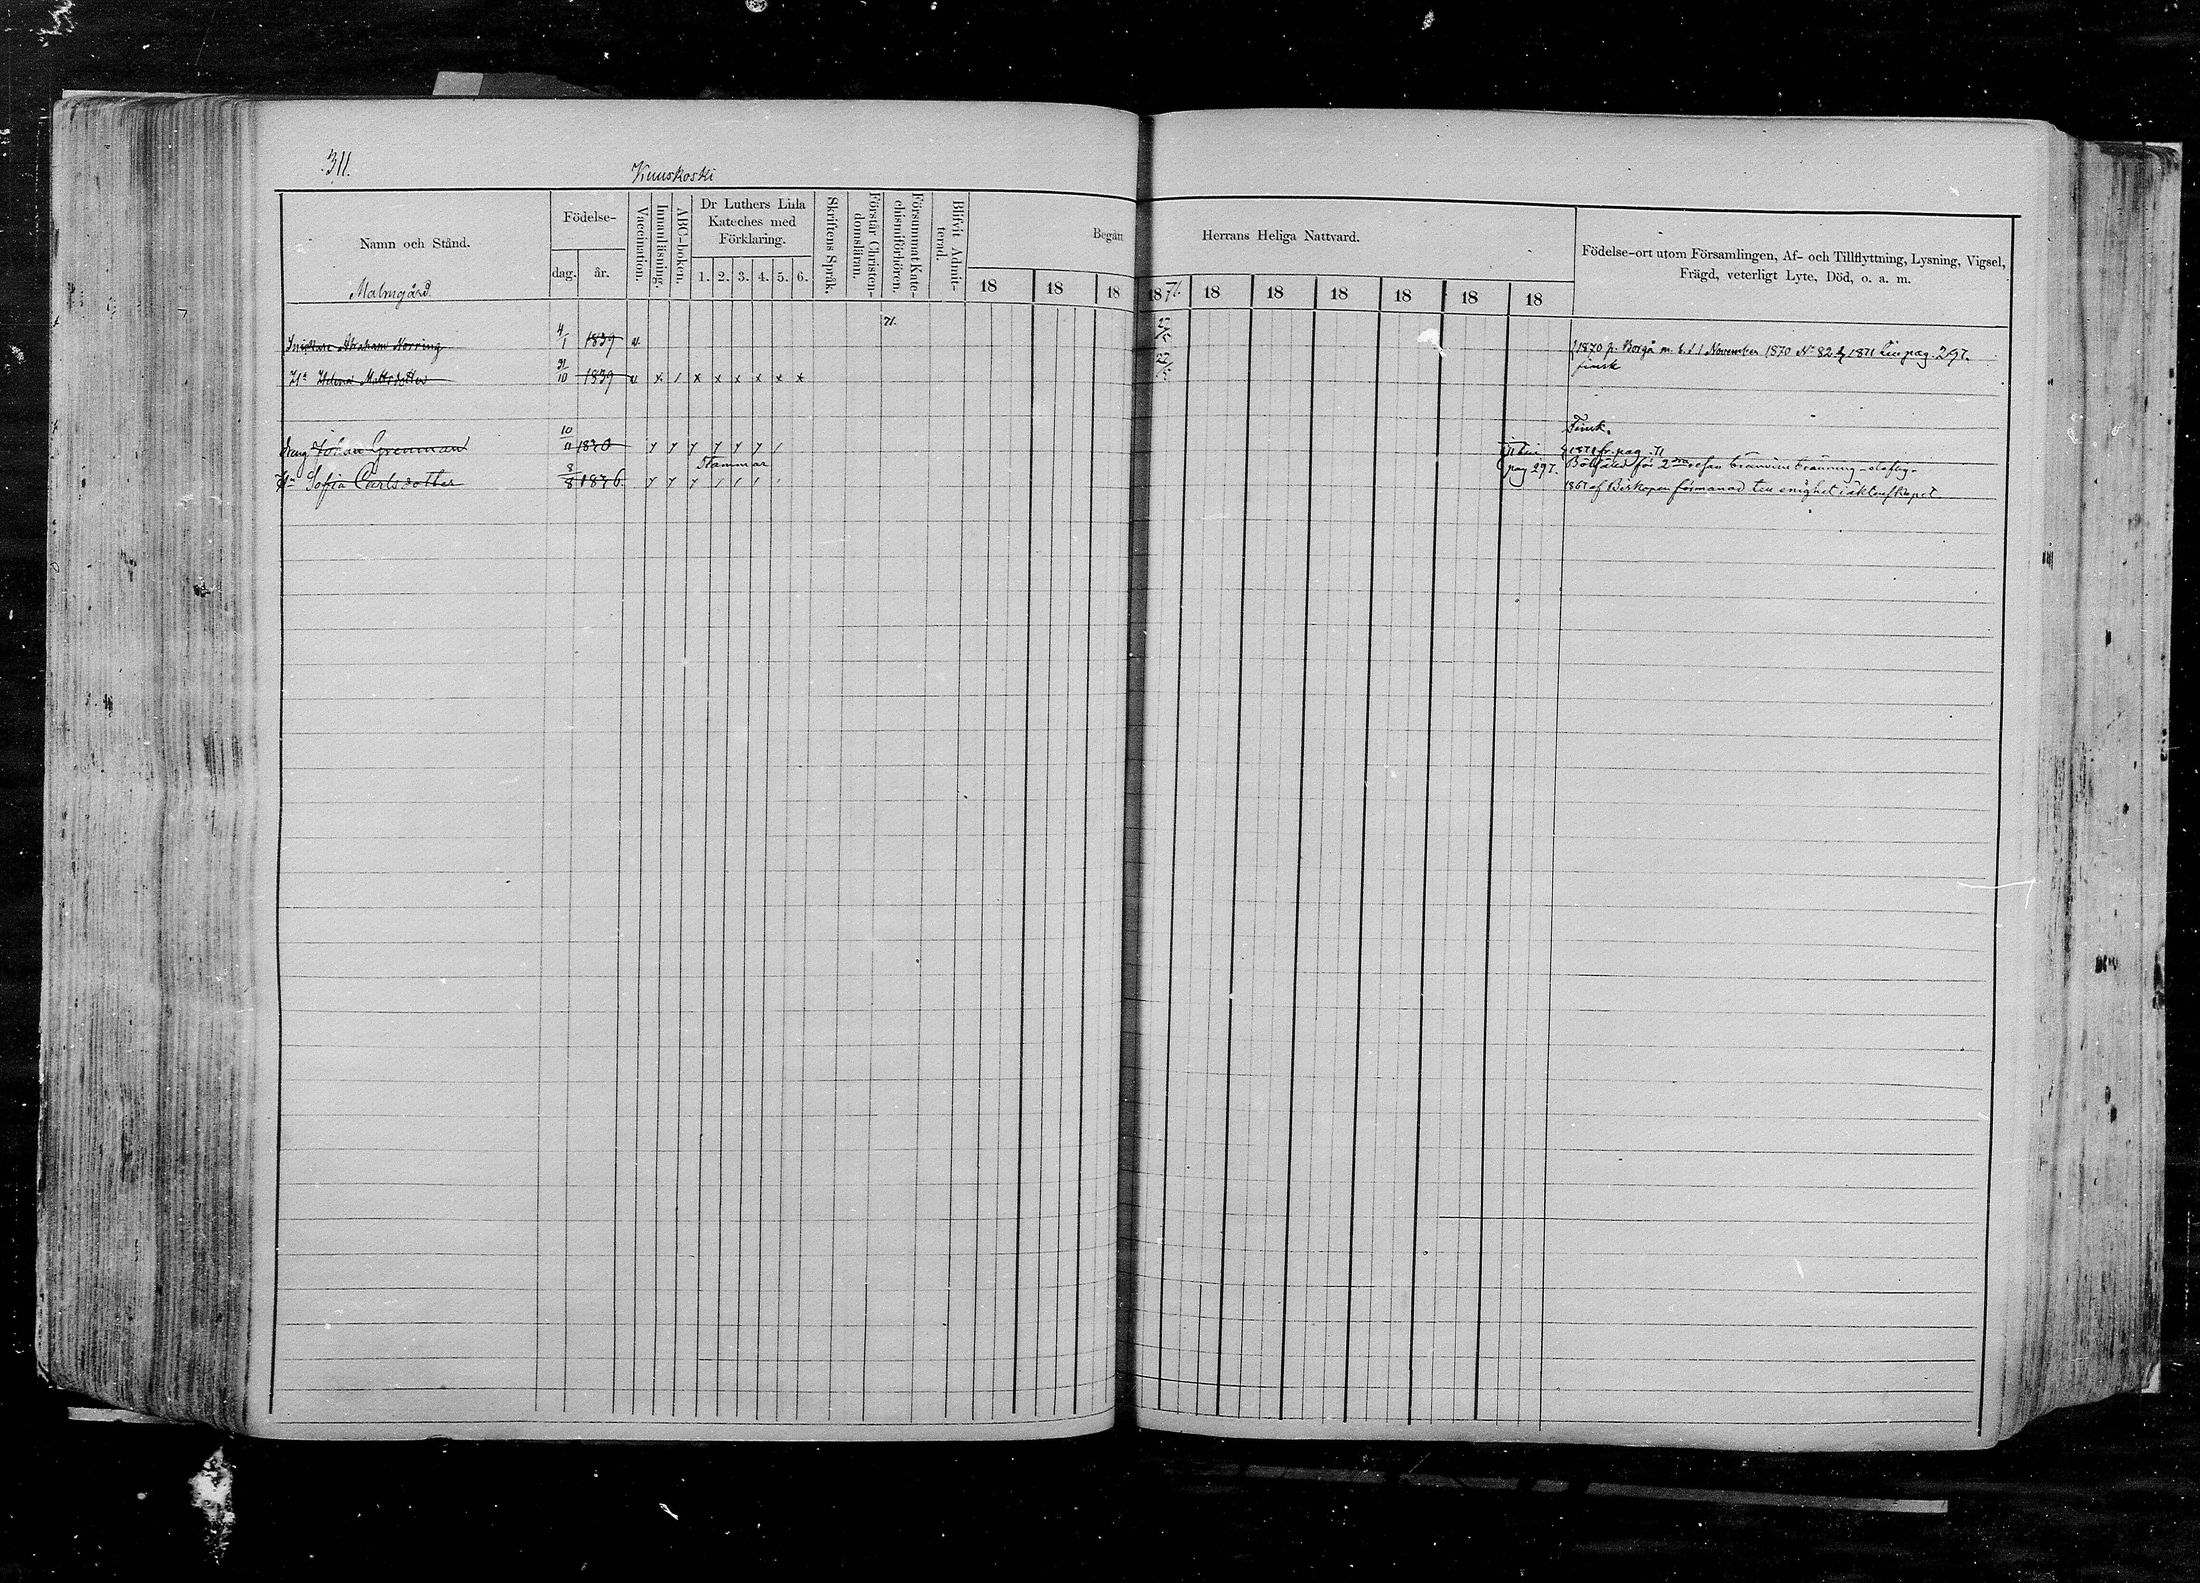 311.
Kuuskoski
Namn och Stånd.
Födelse-
dag.
år.
Vaccination.
Innanläsning.
ABC-boken.
Dr Luthers Lilla
Kateches med
Förklaring.
1. 2. 3. 4. 5. 6.
Skriftens Språk.
Förstår Christen-
domsläran.
Försummat Kate-
chismiförhören.
Blifvit Admit-
terad.
Begått
Herrans Heliga Nattvard.
18 18 18 1871. 18 18 18 18 18 18
Födelse-ort utom Församlingen, Af- och Tillflyttning, Lysning, Vigsel,
Frägd, veterligt Lyte, Död, o. a. m.
Malmgård.
71.
Abraham Norring 4/1 1839 v 27/5 1870 fr. Borgå m. b. d. 1 November 1870 No 82 1871 pag. 297.
Hu Helena Mattsdotter 31/10 1839 v x / x x x x x x 27/5 finsk
Finsk.
Dreng Johan Grenman 10/11 1830 y y y y y y / fr. pag. 71
Stammar
Hu Sofia Carlsdotter 8/8 1836 y y y / / / pag 297. Bötfäld för 2dra resan bränvins bränning
1867 af Biskopen förmanad till enighet i äktenskapet